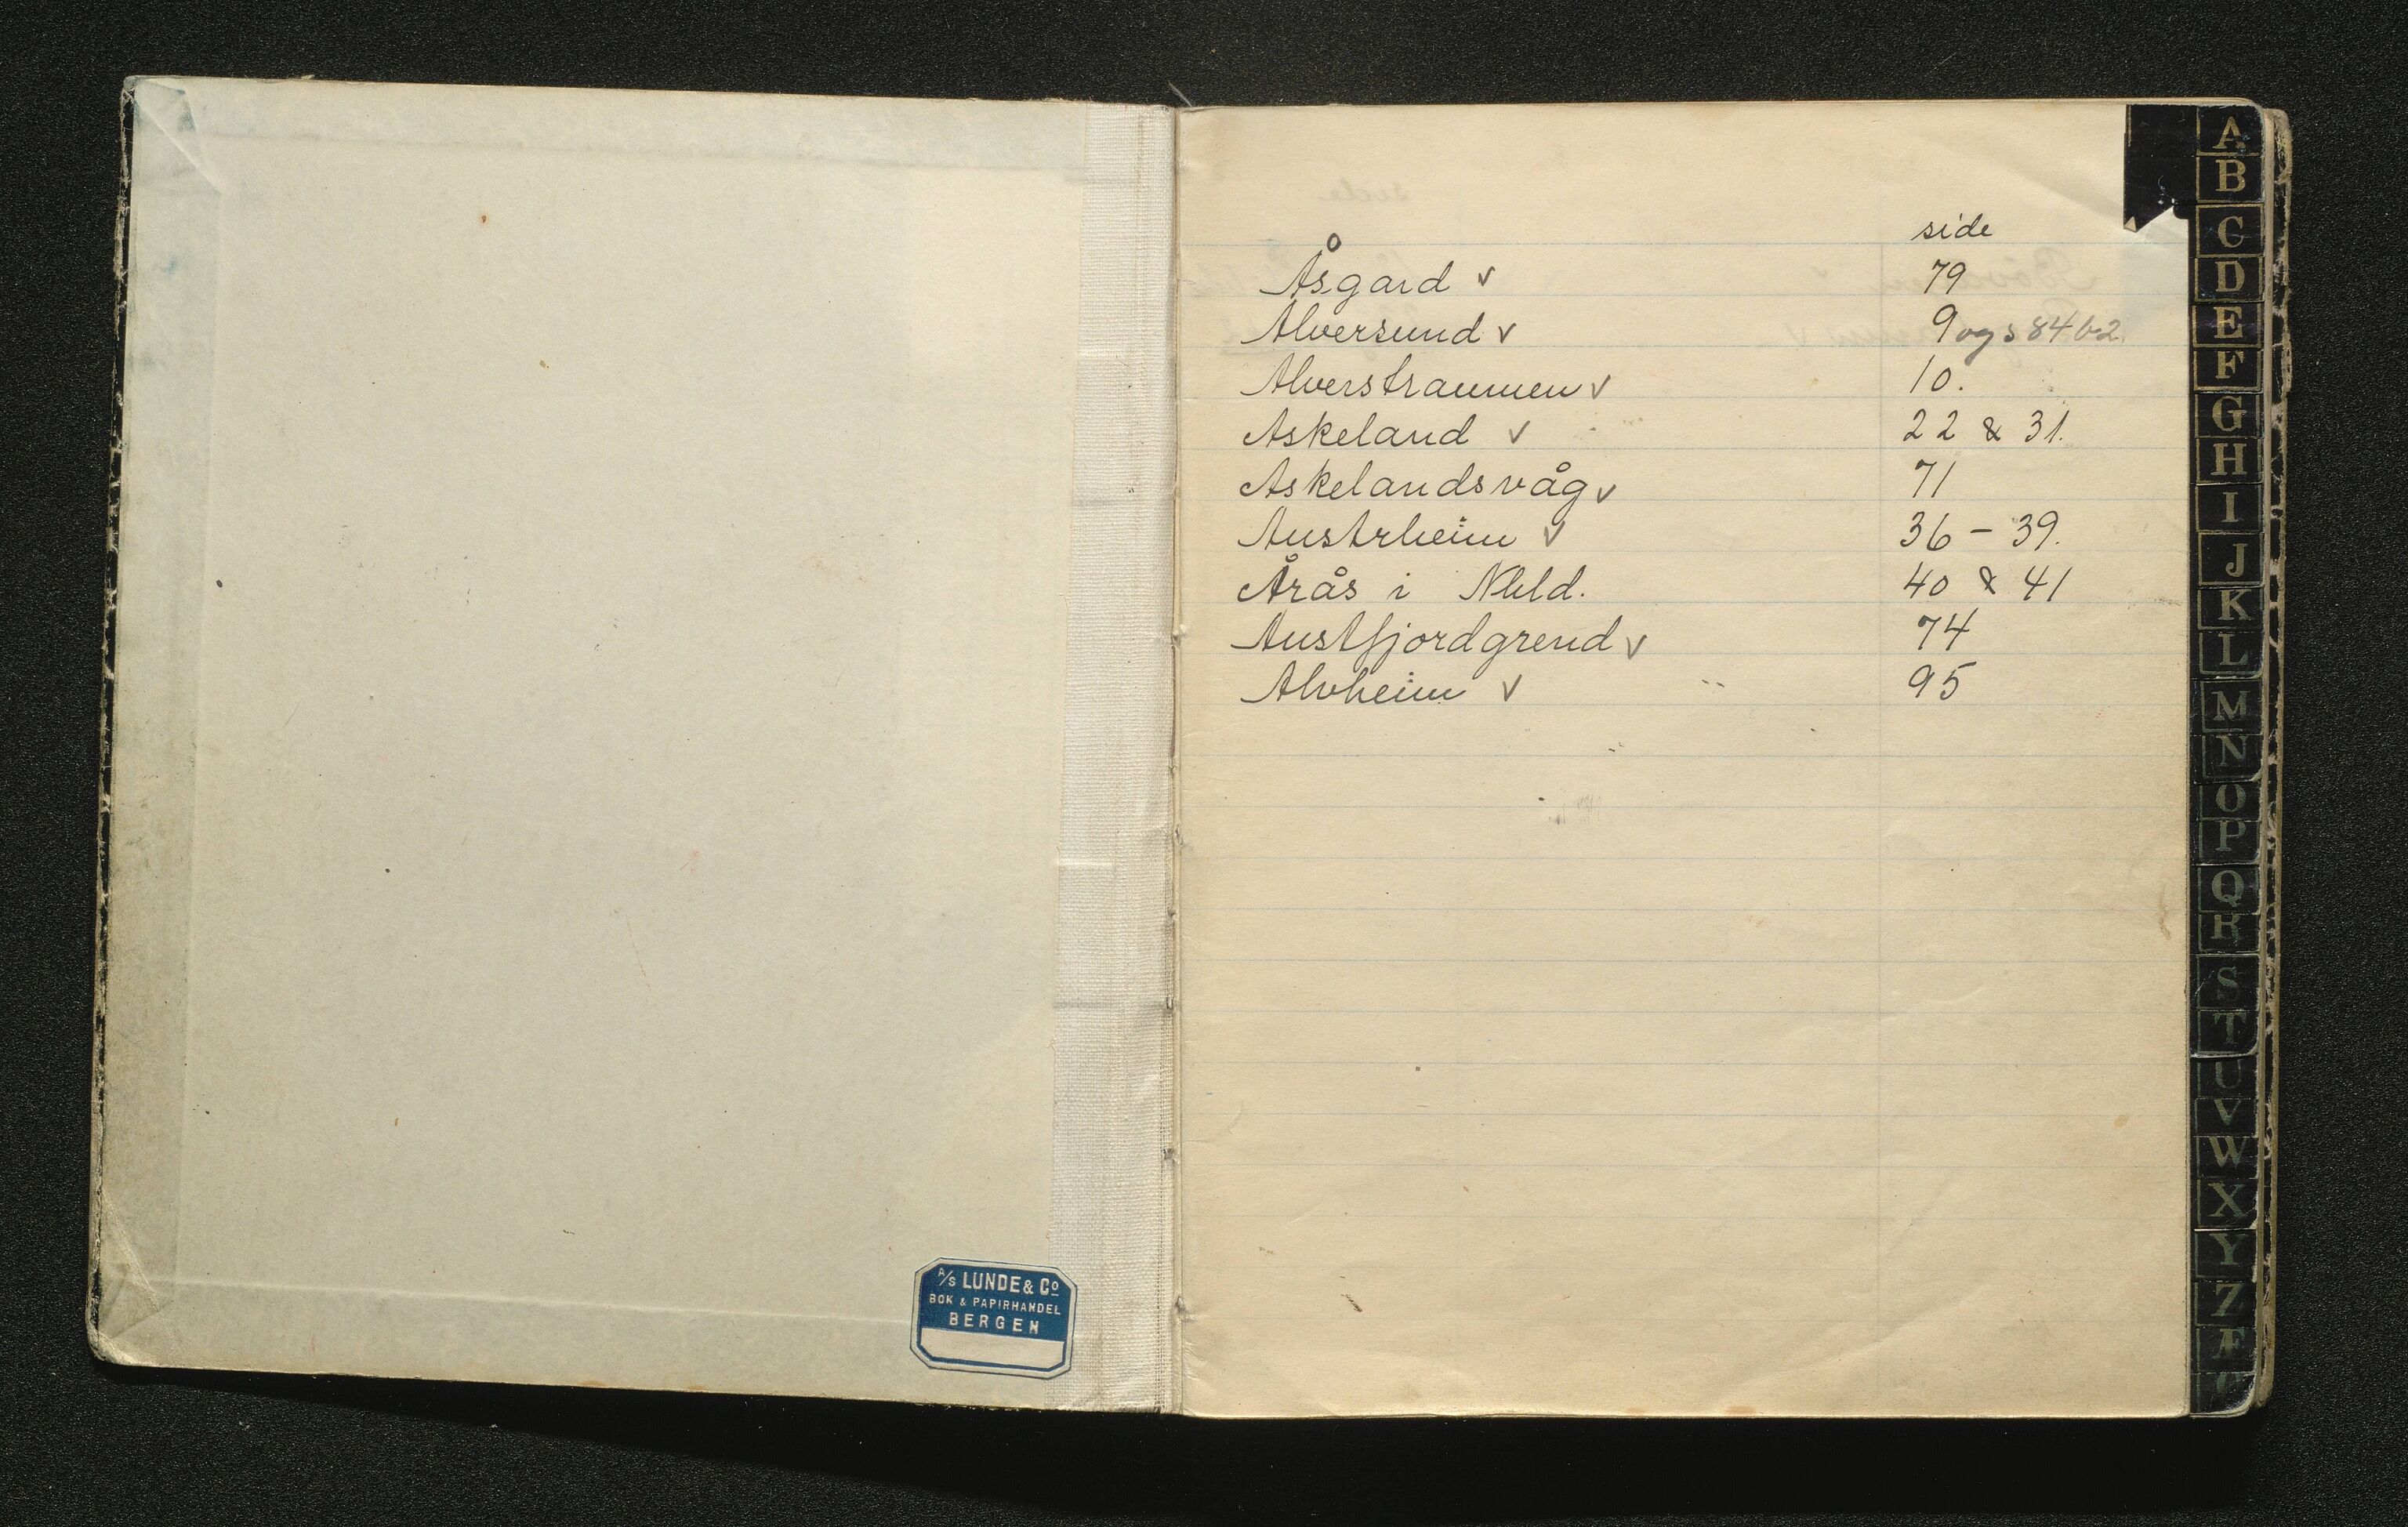 A/S LUNDE & Co
BOK & PAPIRHANDEL
BERGEN
side
Åsgard v 79
Alversund v 9 og s 84 b2.
Alverstraumen v 10.
Askeland v 22 & 31.
Askelandsvåg v 71
Austrheim v 36 - 39.
Årås i Nhld. 40 & 41
Austfjordgrend v 74
Alvheim v 95
A
B
C
D
E
F
G
H
I
J
K
L
M
N
O
P
Q
R
S
T
U
V
W
X
Y
Z
Æ